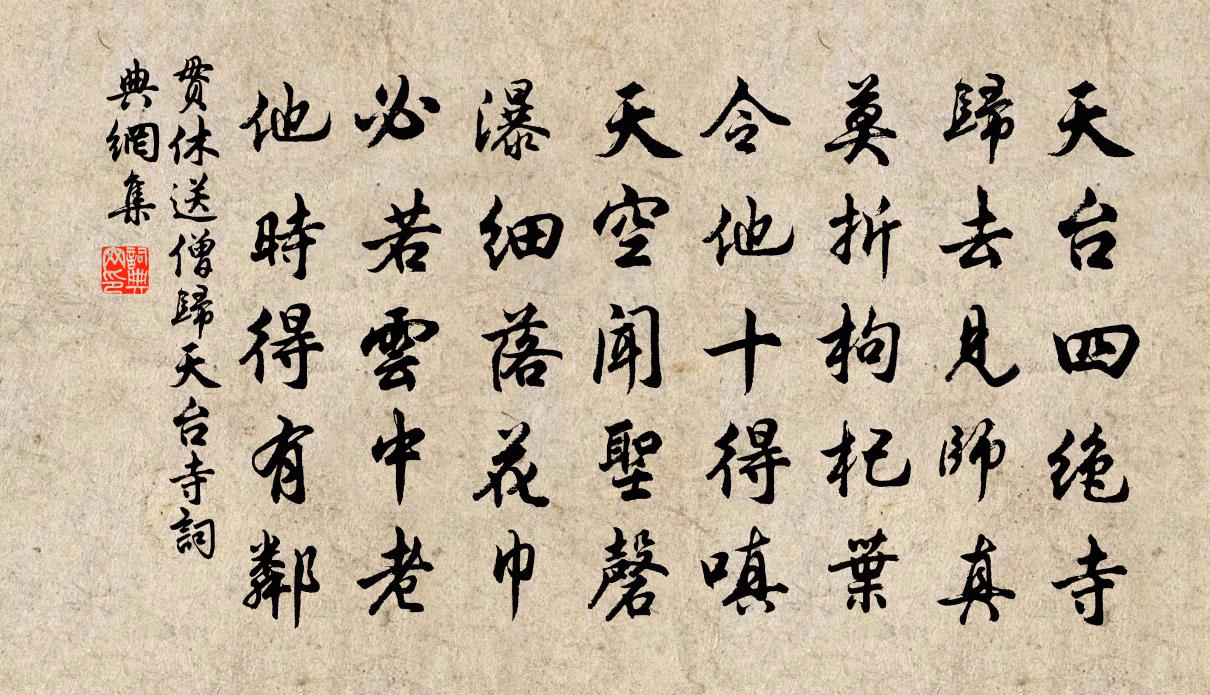 天台四絶寺
歸去見師真
莫折枸杞葉
令他十得嗔
天空聞聖磬
瀑細落花巾
必若雲中老
他時得有鄰
貫休送僧歸天台寺詞
典網集
詞典
网印